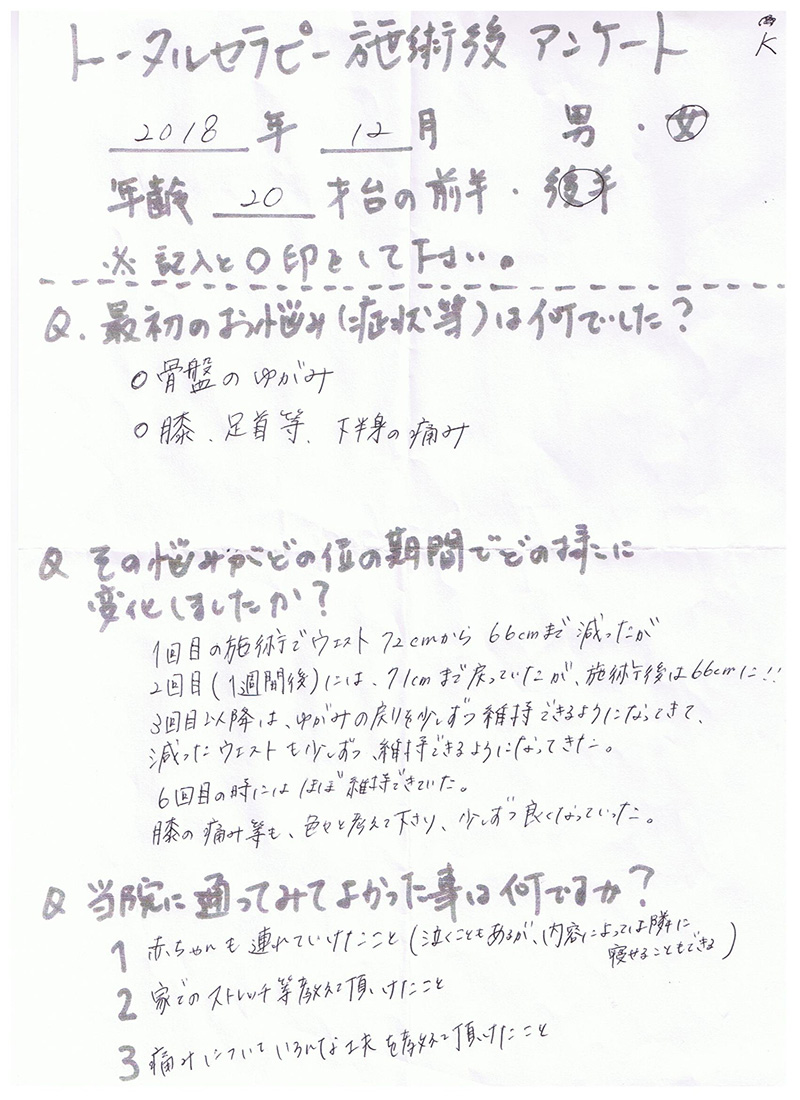 西
K
トータルセラピー施術後アンケート
2018 年 12 月 男・女
年齢 20 才台の前半・後半
※記入と○印をして下さい。
Q.最初のお悩み(症状等)は何でした?
○骨盤のゆがみ
○膝、足首等、下半身の痛み
Q その悩みがどの位の期間でどの様に
変化しましたか?
1回目の施術でウエスト72cmから66cmまで減ったが
2回目(1週間後)には、71cmまで戻っていたが、施術後は66cmに!!
3回目以降は、ゆがみの戻りを少しずつ維持できるようになってきて、
減ったウエストも少しずつ、維持できるようになってきた。
6回目の時にはほぼ維持できていた。
膝の痛み等も、色々と考えて下さり、少しずつ良くなっていった。
Q 当院に通ってみてよかった事は何ですか?
1 赤ちゃんも連れていけたこと(泣くこともあるが、内容によっては隣に
寝せることもできる)
2 家でのストレッチ等教えて頂いけたこと
3 痛みについていろんな工夫を教えて頂けたこと